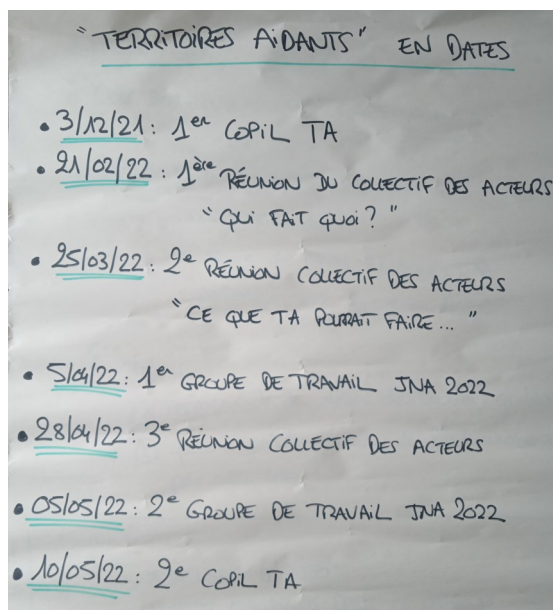 "TERRITOIRES AIDANTS" EN DATES
• 3/12/21 : 1er COPIL TA
• 21/02/22 : 1ère RÉUNION DU COLLECTIF DES ACTEURS
"QUI FAIT QUOI ? "
• 25/03/22 : 2e RÉUNION COLLECTIF DES ACTEURS
"CE QUE TA POURRAIT FAIRE ... "
• 5/04/22 : 1er GROUPE DE TRAVAIL JNA 2022
• 28/04/22 : 3e RÉUNION COLLECTIF DES ACTEURS
• 05/05/22 : 2e GROUPE DE TRAVAIL JNA 2022
• 10/05/22 : 2e COPIL TA